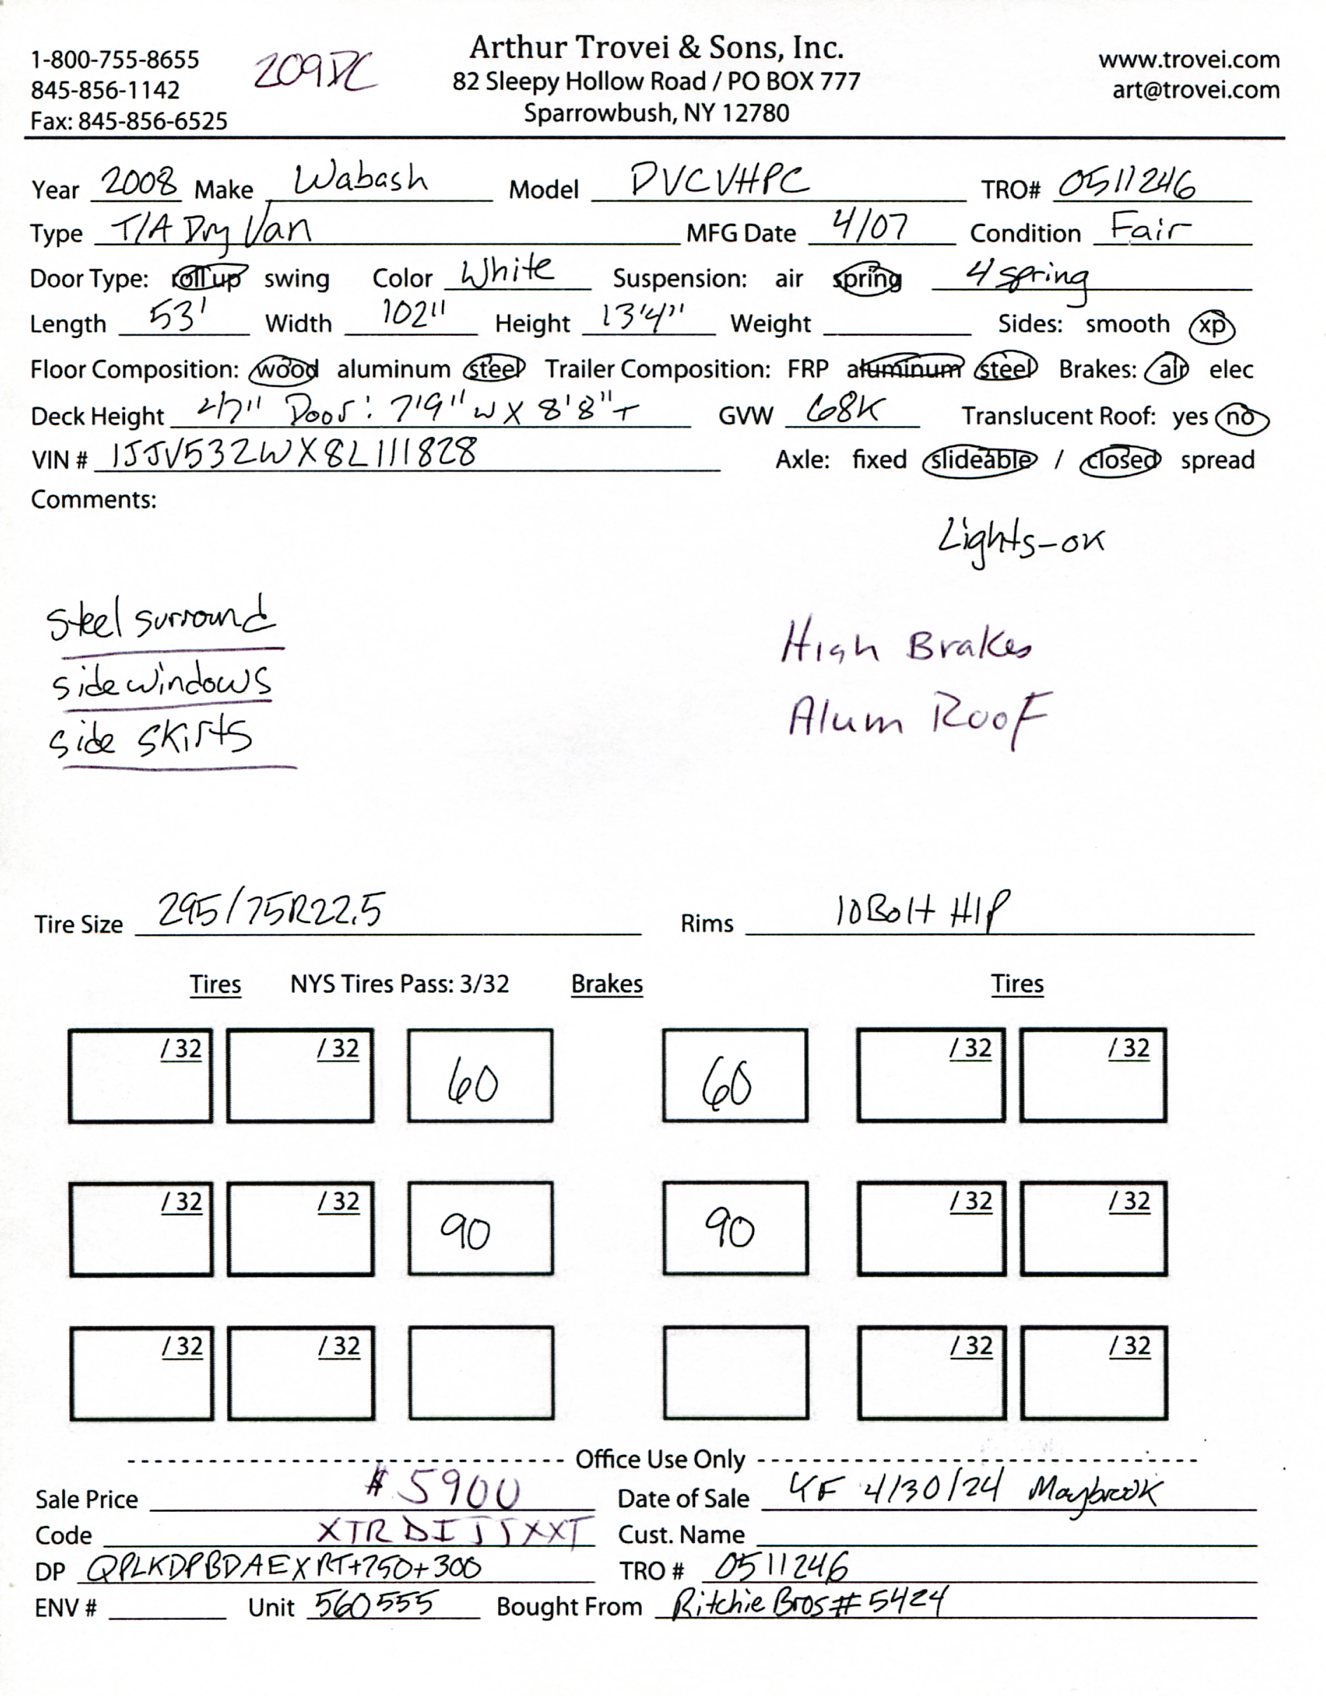 1-800-755-8655
845-856-1142
Fax: 845-856-6525
209DC
Arthur Trovei & Sons, Inc.
82 Sleepy Hollow Road / PO BOX 777
Sparrowbush, NY 12780
www.trovei.com
art@trovei.com
Year 2008 Make Wabash Model DVCVHPC TRO# 0511246
Type T/A Dry Van MFG Date 4/07 Condition Fair
Door Type: roll up swing Color White Suspension: air spring 4 spring
Length 53' Width 102" Height 13'4" Weight Sides: smooth xp
Floor Composition: wood aluminum steel Trailer Composition: FRP aluminum steel Brakes: air elec
Deck Height 47" Door: 7'9"W X 8'8"T GVW 68K Translucent Roof: yes no
VIN # 1JJV532WX8L111828 Axle: fixed slideable / closed spread
Comments:
Lights-ok
steel surround
side windows
side skirts
High Brakes
Alum Roof
Tire Size 295/75R22.5 Rims 10 Bolt H/P
Tires NYS Tires Pass: 3/32 Brakes Tires
/32 /32 60 60 /32 /32
/32 /32 90 90 /32 /32
/32 /32 /32 /32
Office Use Only
Sale Price $5900 Date of Sale 4/30/24 Maybrook
Code Cust. Name
DP QPLKDPBDAEXRT+750+300 TRO # 0511246
ENV # Unit 560555 Bought From Ritchie Bros #5424